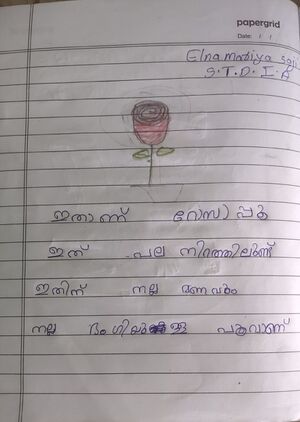 papergrid
Date: / /
Elna mariya
S.T.D.I.A
ഇതാണ് റോസാപ്പൂ
ഇത് പല നിറത്തിലുണ്ട്
ഇതിന് നല്ല മണവും
നല്ല ഭംഗിയുള്ള പൂവാണ്